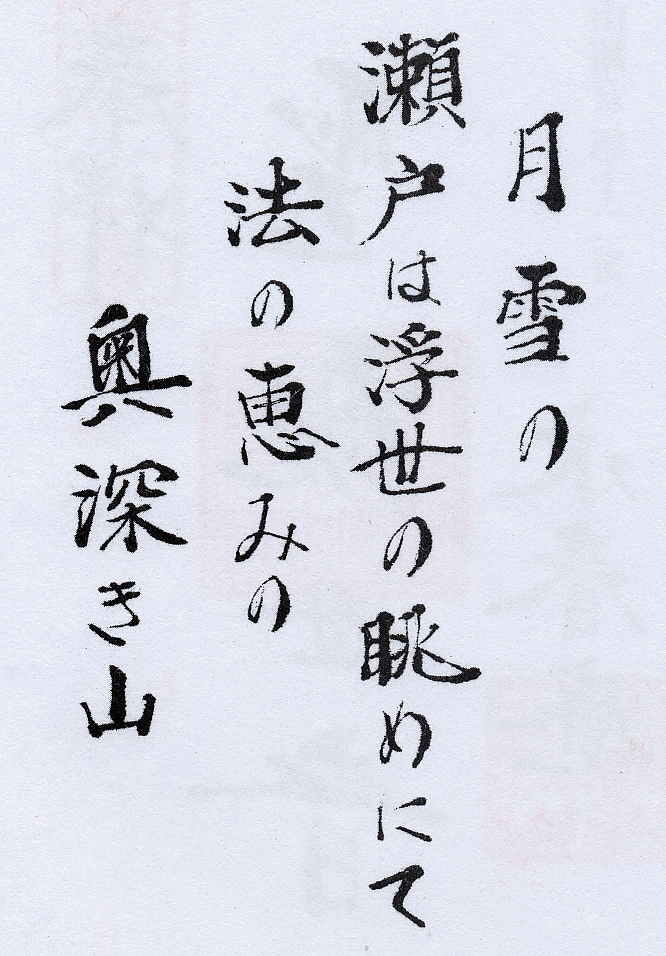 月雪の
瀬戸は浮世の眺めにて
法の恵みの
奥深き山